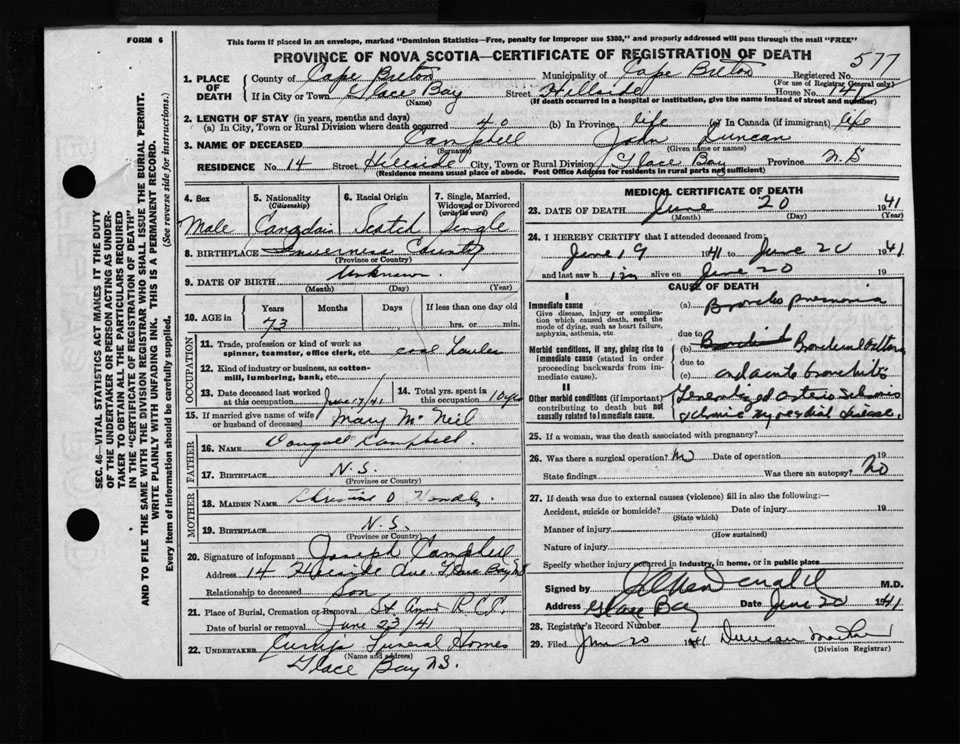 FORM 6
This form if placed in an envelope, marked "Dominion Statistics—Free, penalty for improper use $300," and properly addressed will pass through the mail "FREE"
PROVINCE OF NOVA SCOTIA—CERTIFICATE OF REGISTRATION OF DEATH
577
1. PLACE OF DEATH
County of Cape Breton Municipality of Cape Breton Registered No.
(For use of Registrar General only)
If in City or Town Glace Bay Street Hillside House No. 14
(Name) (If death occurred in a hospital or institution, give the name instead of street and number)
2. LENGTH OF STAY (in years, months and days)
(a) In City, Town or Rural Division where death occurred 40 (b) In Province life (c) In Canada (if immigrant) life
3. NAME OF DECEASED Campbell John Duncan
(Surname) (Given name or names)
RESIDENCE No. 14 Street Hillside City, Town or Rural Division Glace Bay Province N.S
(Residence means usual place of abode. Post Office Address for residents in rural parts not sufficient)
4. Sex
Male
5. Nationality
(Citizenship)
Canadain
6. Racial Origin
Scotch
7. Single, Married, Widowed or Divorced
(write the word)
Single
8. BIRTHPLACE Inverness County
(Province or Country)
9. DATE OF BIRTH Unknown
(Month) (Day) (Year)
10. AGE in Years Months Days If less than one day old
73 hrs. or min.
OCCUPATION
11. Trade, profession or kind of work as spinner, teamster, office clerk, etc. coal
12. Kind of industry or business, as cotton-mill, lumbering, bank, etc.
13. Date deceased last worked at this occupation June 17/41
14. Total yrs. spent in this occupation 10 yrs
15. If married give name of wife or husband of deceased Mary McNeil
FATHER
16. NAME Dougall Campbell
17. BIRTHPLACE N.S.
(Province or Country)
MOTHER
18. MAIDEN NAME
19. BIRTHPLACE N.S.
(Province or Country)
20. Signature of informant Joseph Campbell
Address 14 Hillside Ave. Glace Bay N.S
Relationship to deceased Son
21. Place of Burial, Cremation or Removal St Anns R.C.C.
Date of burial or removal June 23/41
22. UNDERTAKER Funeral Homes
(Name and address)
Glace Bay N.S.
MEDICAL CERTIFICATE OF DEATH
23. DATE OF DEATH June 20 1941
(Month) (Day) (Year)
24. I HEREBY CERTIFY that I attended deceased from:
June 19 1941 to June 20 1941
and last saw h im alive on June 20 19
CAUSE OF DEATH
I
Immediate cause
Give disease, injury or complication which caused death, not the mode of dying, such as heart failure, asphyxia, asthenia, etc.
(a) Broncho pneumonia
due to
Morbid conditions, if any, giving rise to immediate cause (stated in order proceeding backwards from immediate cause).
(b) Bronchial
due to
(c) and acute bronchitis
II
Other morbid conditions (if important) contributing to death but not causally related to immediate cause.
Generalized arterio Sclerosis
chronic myocardial disease.
25. If a woman, was the death associated with pregnancy?
26. Was there a surgical operation? No Date of operation 19
State findings Was there an autopsy? No
27. If death was due to external causes (violence) fill in also the following:—
Accident, suicide or homicide? Date of injury 19
(State which)
Manner of injury
(How sustained)
Nature of injury
Specify whether injury occurred in industry, in home, or in public place
Signed by MacDonald M.D.
Address Glace Bay Date June 20 1941
28. Registrar's Record Number
29. Filed Jun 20 1941 Duncan
(Division Registrar)
SEC. 46—VITAL STATISTICS ACT MAKES IT THE DUTY
OF THE UNDERTAKER OR PERSON ACTING AS UNDERTAKER TO OBTAIN ALL THE PARTICULARS REQUIRED
IN THE "CERTIFICATE OF REGISTRATION OF DEATH"
AND TO FILE THE SAME WITH THE DIVISION REGISTRAR WHO SHALL ISSUE THE BURIAL PERMIT.
WRITE PLAINLY WITH UNFADING INK. THIS IS A PERMANENT RECORD.
Every item of information should be carefully supplied. (See reverse side for instructions.)